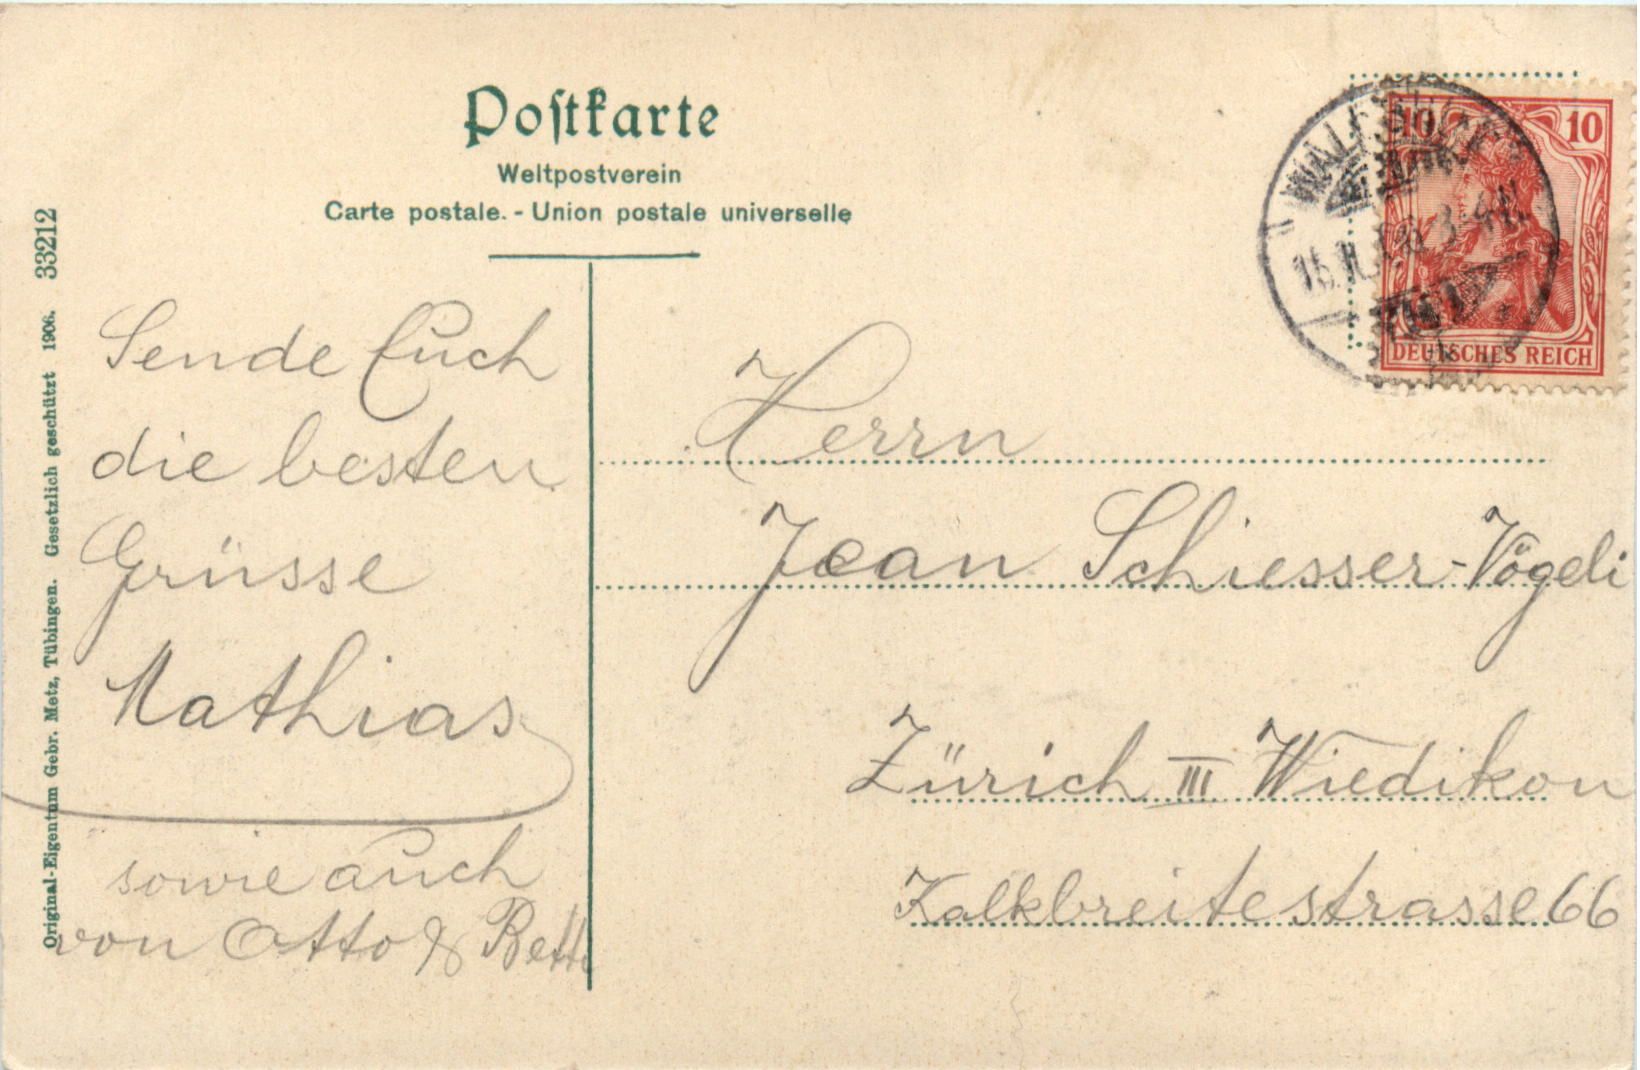 Postkarte
Weltpostverein
Carte postale. - Union postale universelle
10
10
DEUTSCHES REICH
Original-Eigentum Gebr. Metz, Tübingen. Gesetzlich geschützt 1906. 33212
Sende Euch
die besten
Grüsse
Mathias
sowie auch
von Otto & Betti
Herrn
Jean Schiesser-Vögeli
Zürich III Wiedikon
Kalkbreitestrasse 66